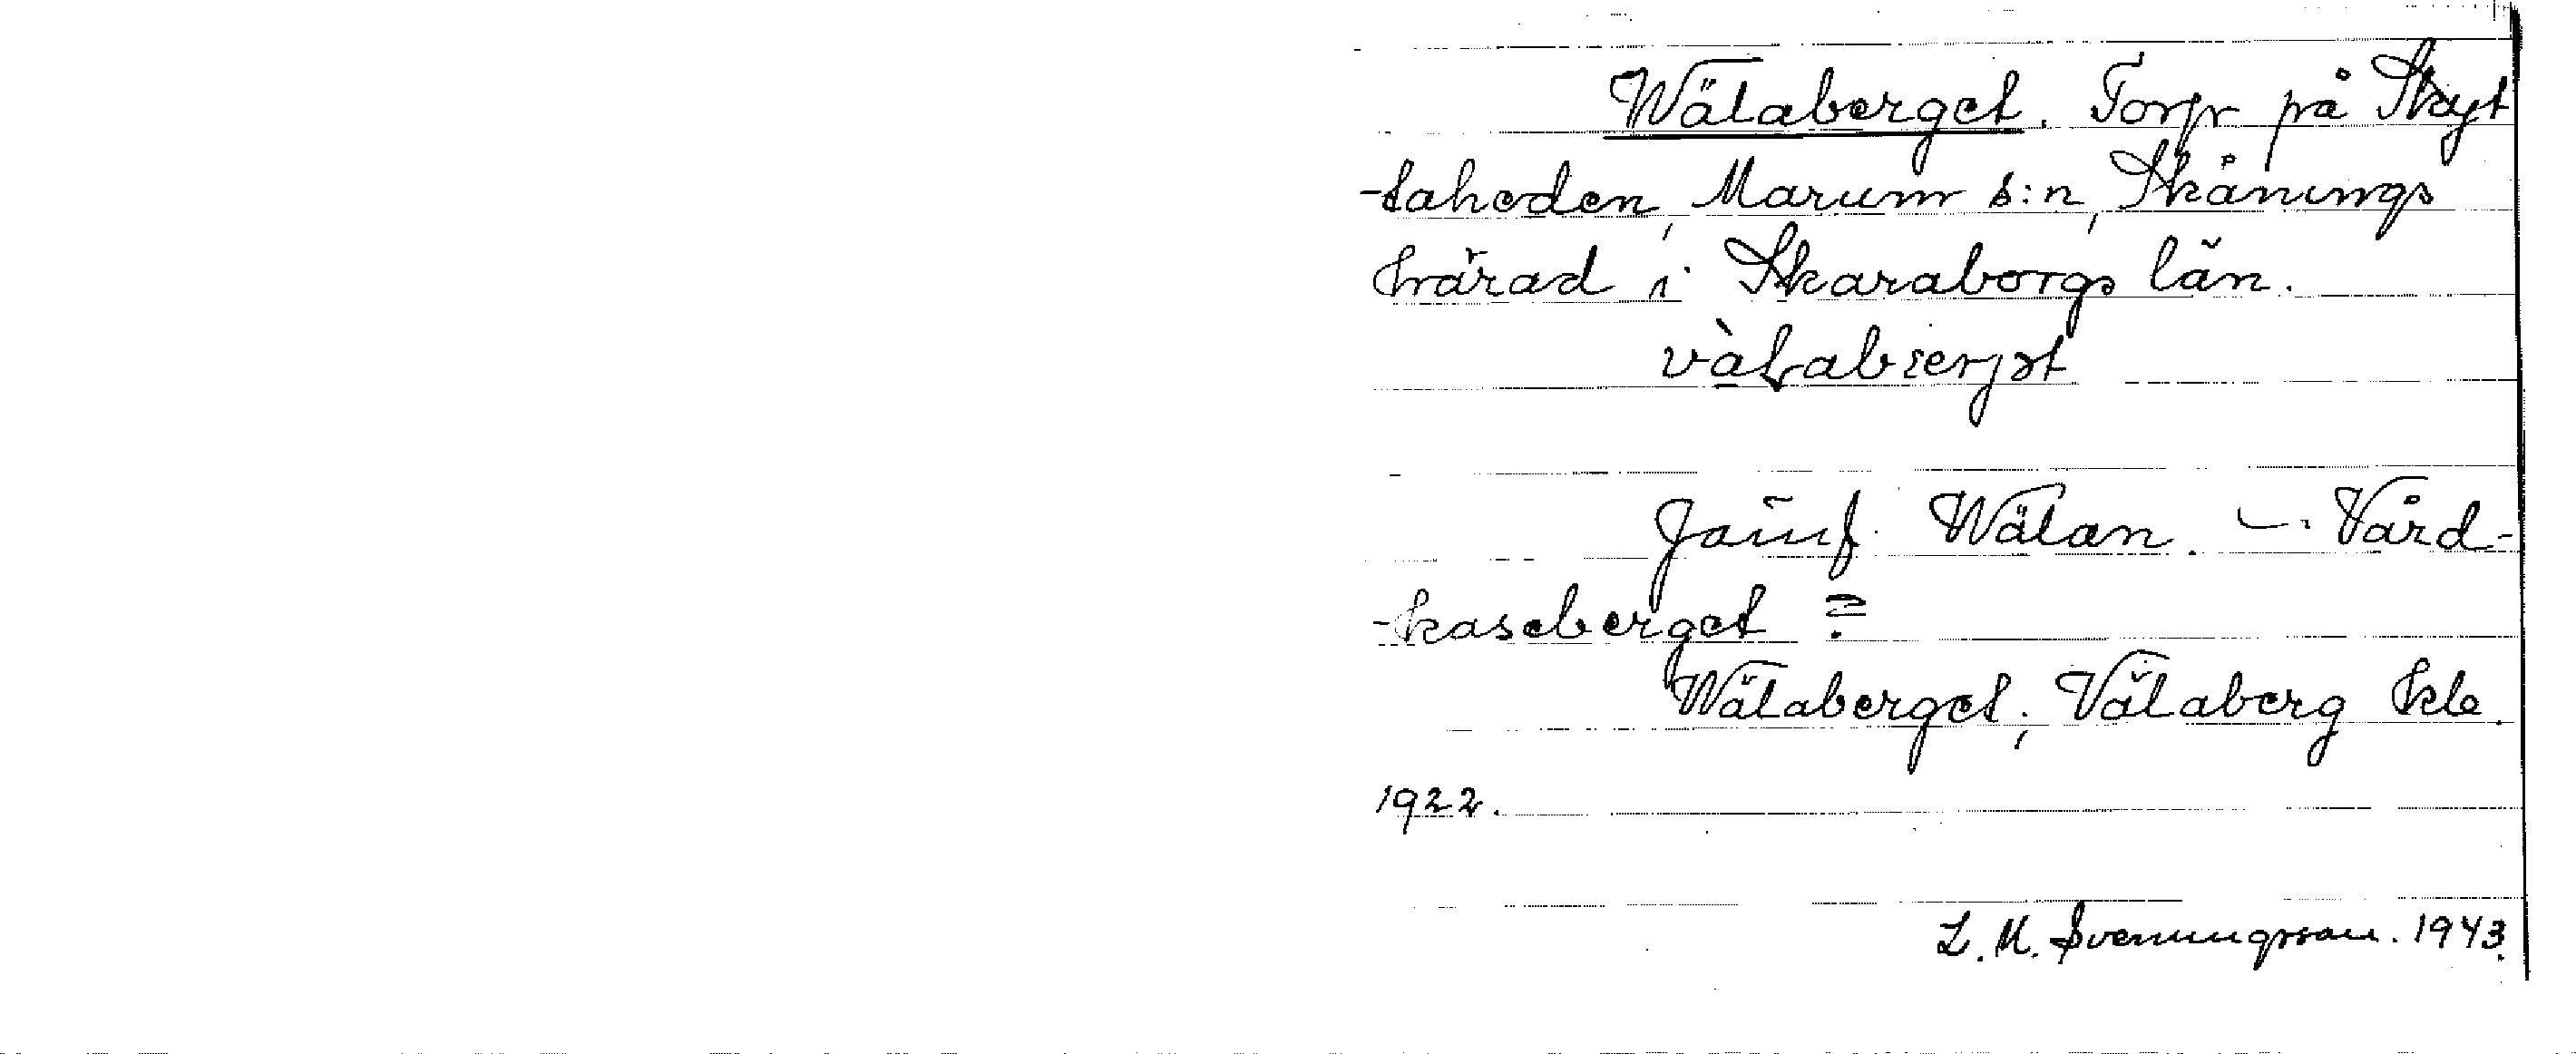 Wälaberget. Torp på Skyt
-taheden, Marum s:n, Skånings
härad i Skaraborgs län.
Jämf. Wälan. — Vård-
-kaseberget ?
Wälaberget; Välaberg Kle.
1922.
L. M. Svenungsson. 1943.